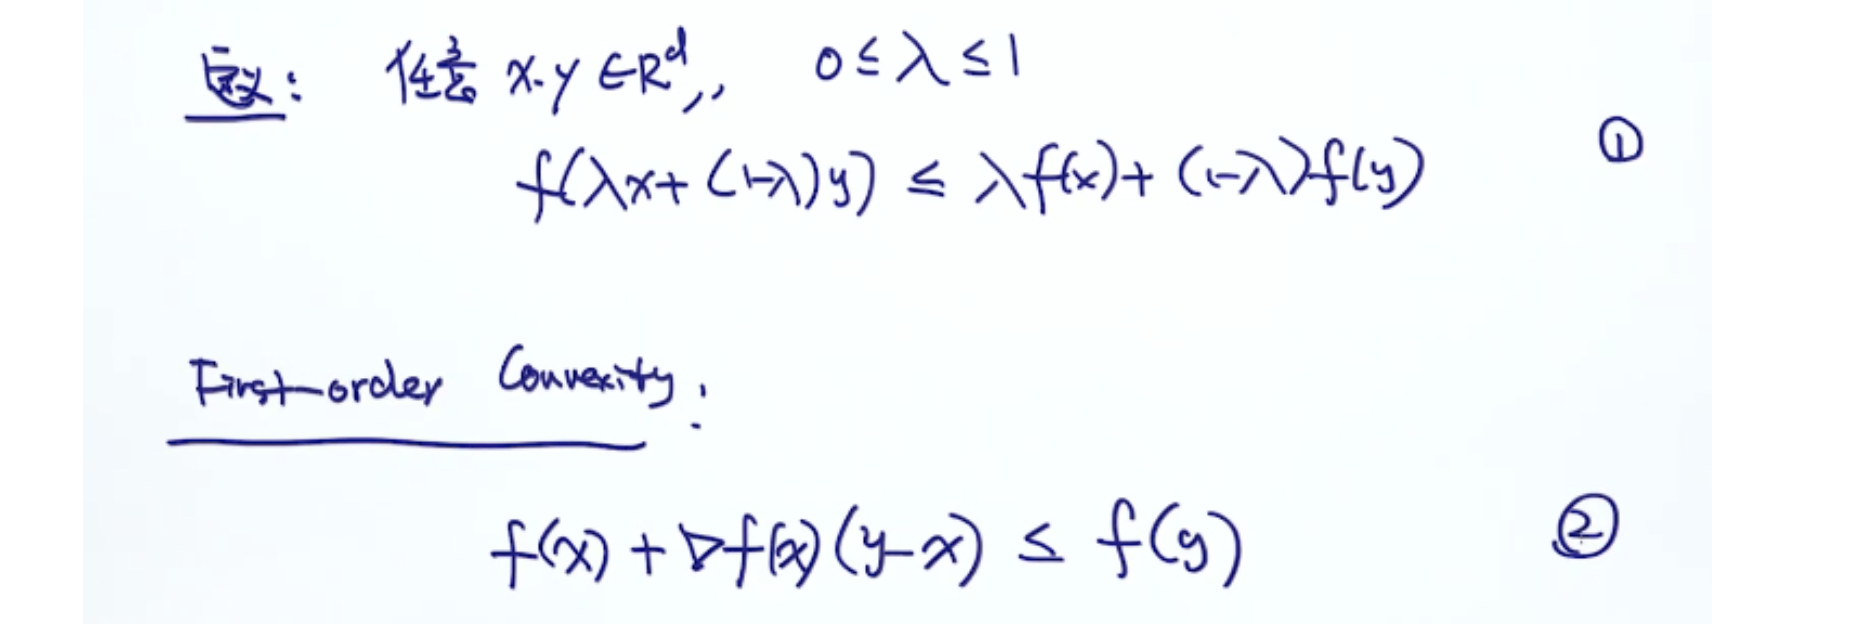 定义: 任意 x.y ∈R^d,, 0≤λ≤1
f(λx+(1-λ)y) ≤ λf(x)+(1-λ)f(y) ①
First-order Convexity:
f(x)+∇f(x)(y-x) ≤ f(y) ②